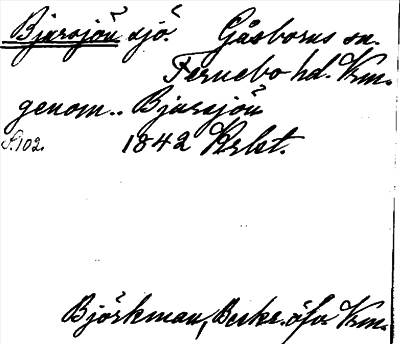 Bjursjön sjö. Gåsborns sn.
Fernebo hd. Vrm.
genom.. Bjursjön
S.102. 1842 Krlst.
Björkman, Beskr. öfver Vrm.